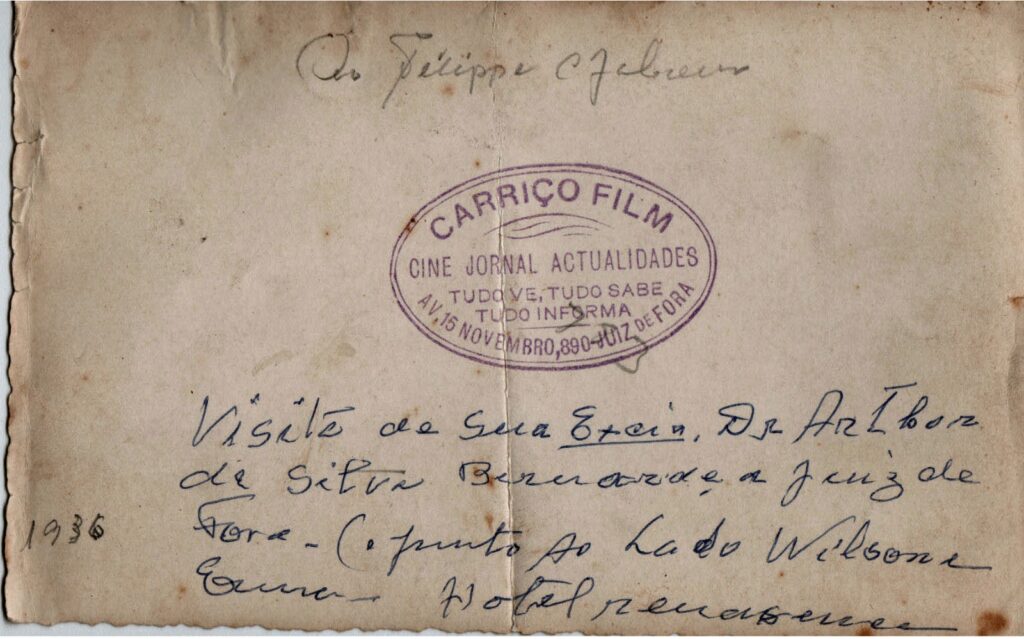 Ao Filippe
CARRIÇO FILM
CINE JORNAL ACTUALIDADES
TUDO VE, TUDO SABE
TUDO INFORMA
AV. 15 NOVEMBRO, 890-JUIZ DE FORA
Visita de Sua Excia. Dr Arthor
da Silva Bernardes a Juiz de
Fora - ao Lado Wilson
Hotel
1936